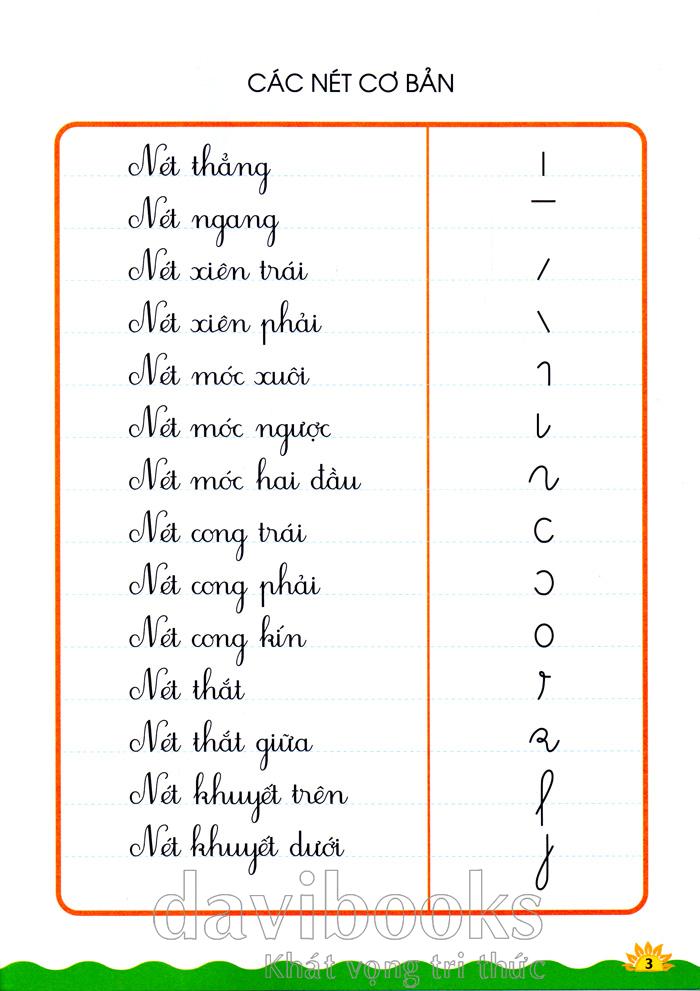 CÁC NÉT CƠ BẢN
Nét thẳng
Nét ngang
Nét xiên trái
Nét xiên phải
Nét móc xuôi
Nét móc ngược
Nét móc hai đầu
Nét cong trái
Nét cong phải
Nét cong kín
Nét thắt
Nét thắt giữa
Nét khuyết trên
Nét khuyết dưới
davibooks
Khát vọng tri thức
3